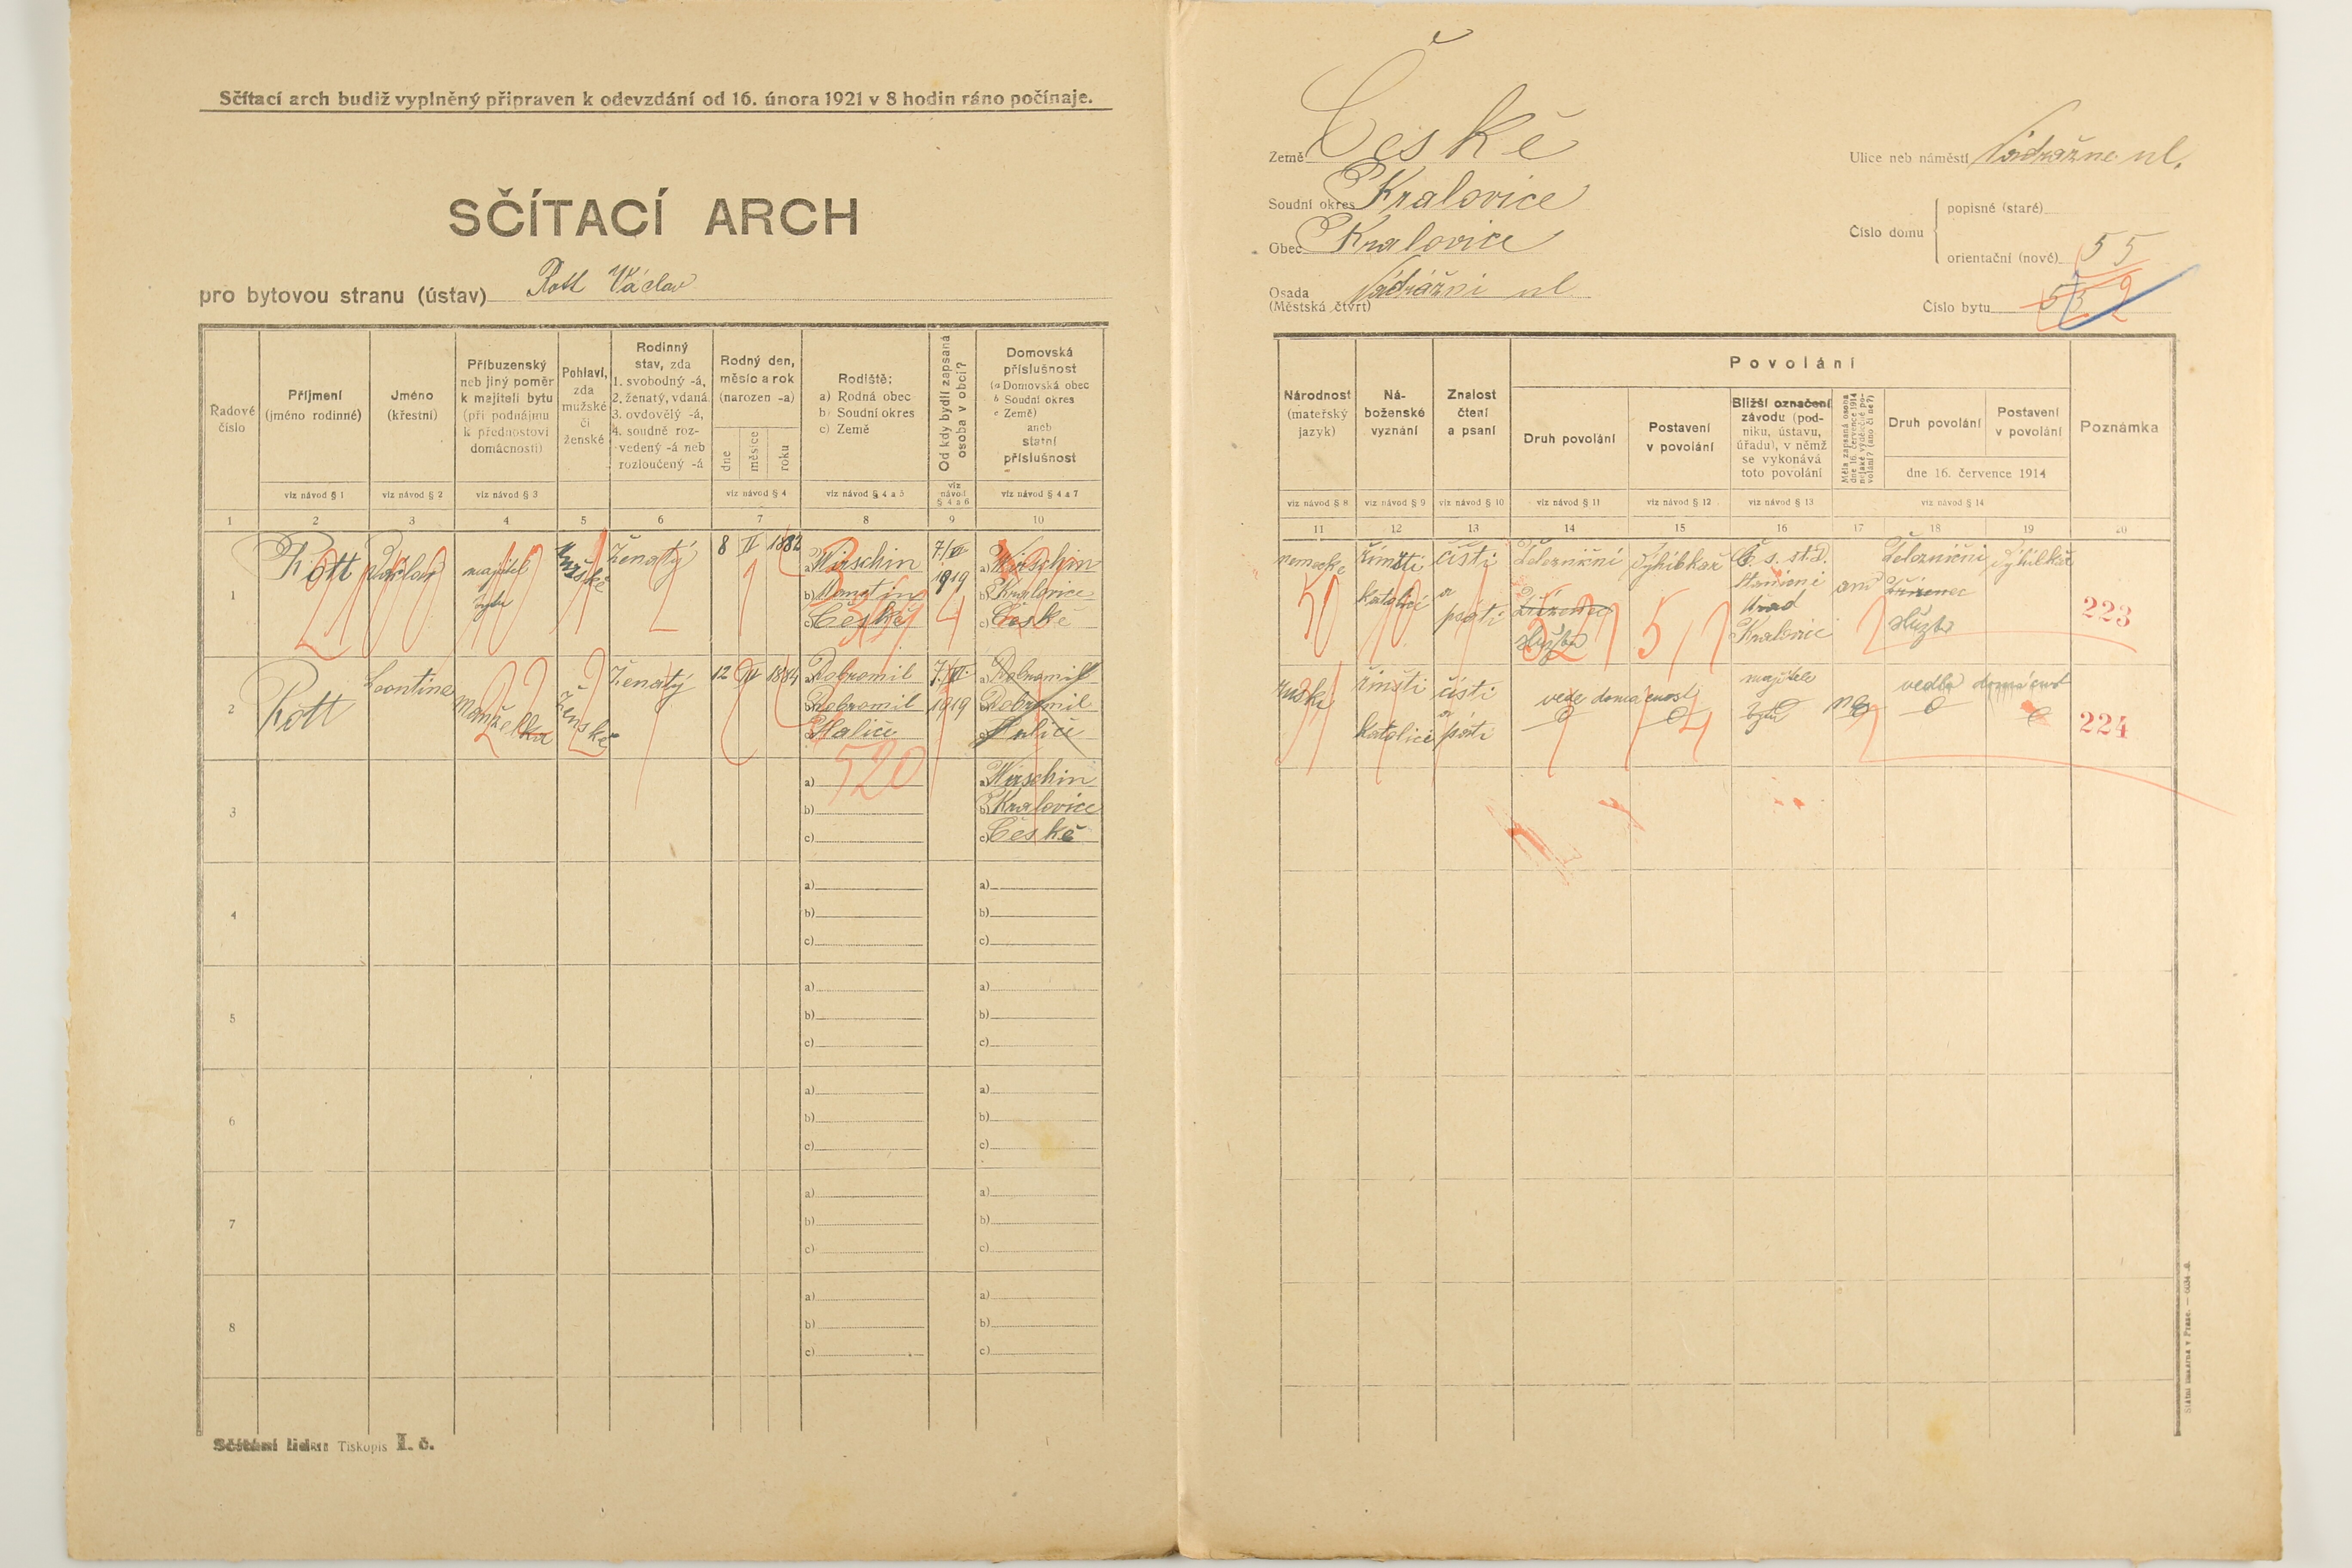 Sčítací arch budiž vyplněný připraven k odevzdání od 16. února 1921 v 8 hodin ráno počínaje.
SČÍTACÍ ARCH
pro bytovou stranu (ústav) Rott Václav
Řadové číslo
Příjmení (jméno rodinné)
Jméno (křestní)
Příbuzenský neb jiný poměr k majiteli bytu (při podnájmu k přednostovi domácnosti)
Pohlaví, zda mužské či ženské
Rodinný stav, zda 1. svobodný -á, 2. ženatý, vdaná 3. ovdovělý -á, 4. soudně rozvedený -á neb rozloučený -á
Rodný den, měsíc a rok (narozen -a)
dne
měsíce
roku
Rodiště:
a) Rodná obec
b) Soudní okres
c) Země
Od kdy bydlí zapsaná osoba v obci?
Domovská příslušnost
(a Domovská obec
b Soudní okres
c Země)
aneb
státní
příslušnost
viz návod § 1
viz návod § 2
viz návod § 3
viz návod § 4
viz návod § 4 a 5
viz návod § 4 a 6
viz návod § 4 a 7
1 2 3 4 5 6 7 8 9 10
1 Rott Václav majitel bytu Mužské ženatý 8 II 1882
a) Wirschin
b) Manetin
c) České
7./VI 1919
a) Wirschin
b) Kralovice
c) České
2 Rott Leontine manželka Ženské ženatý 12 IV 1884
a) Dobromil
b) Dobromil
c) Halič
7./VI. 1919
a) Dobromil
b) Dobromil
c) Halič
520
3
a)
b)
c)
a) Wirschin
b) Kralovice
c) České
4
a)
b)
c)
a)
b)
c)
5
a)
b)
c)
a)
b)
c)
6
a)
b)
c)
a)
b)
c)
7
a)
b)
c)
a)
b)
c)
8
a)
b)
c)
a)
b)
c)
Sčítání lidu: Tiskopis I. č.
Země České
Soudní okres Kralovice
Obec Kralovice
Osada (Městská čtvrť) Nádražni ul
Ulice neb náměstí Nádražne ul.
Číslo domu
popisné (staré)
orientační (nové) 55
Číslo bytu 55 2
Národnost (mateřský jazyk)
Náboženské vyznání
Znalost čtení a psaní
Povolání
Druh povolání
Postavení v povolání
Bližší označení závodu (podniku, ústavu, úřadu), v němž se vykonává toto povolání
Měla zapsaná osoba dne 16. července 1914 nějaké výdělečné povolání? (ano či ne?)
Druh povolání
Postavení v povolání
dne 16. července 1914
Poznámka
viz návod § 8
viz návod § 9
viz návod § 10
viz návod § 11
viz návod § 12
viz návod § 13
viz návod § 14
11 12 13 14 15 16 17 18 19 20
nemecke římsti katolicí čísti a psáti železniční zřízenec služba Výhibkař Č. s. st. d. Staniční úřad Kralovic ano železniční zřízenec služba Výhibkař 223
Ruski římsti katolicí čísti a psáti vede domácnost majitele bytu ne vedla domácnost 224
Státní tiskárna v Praze.